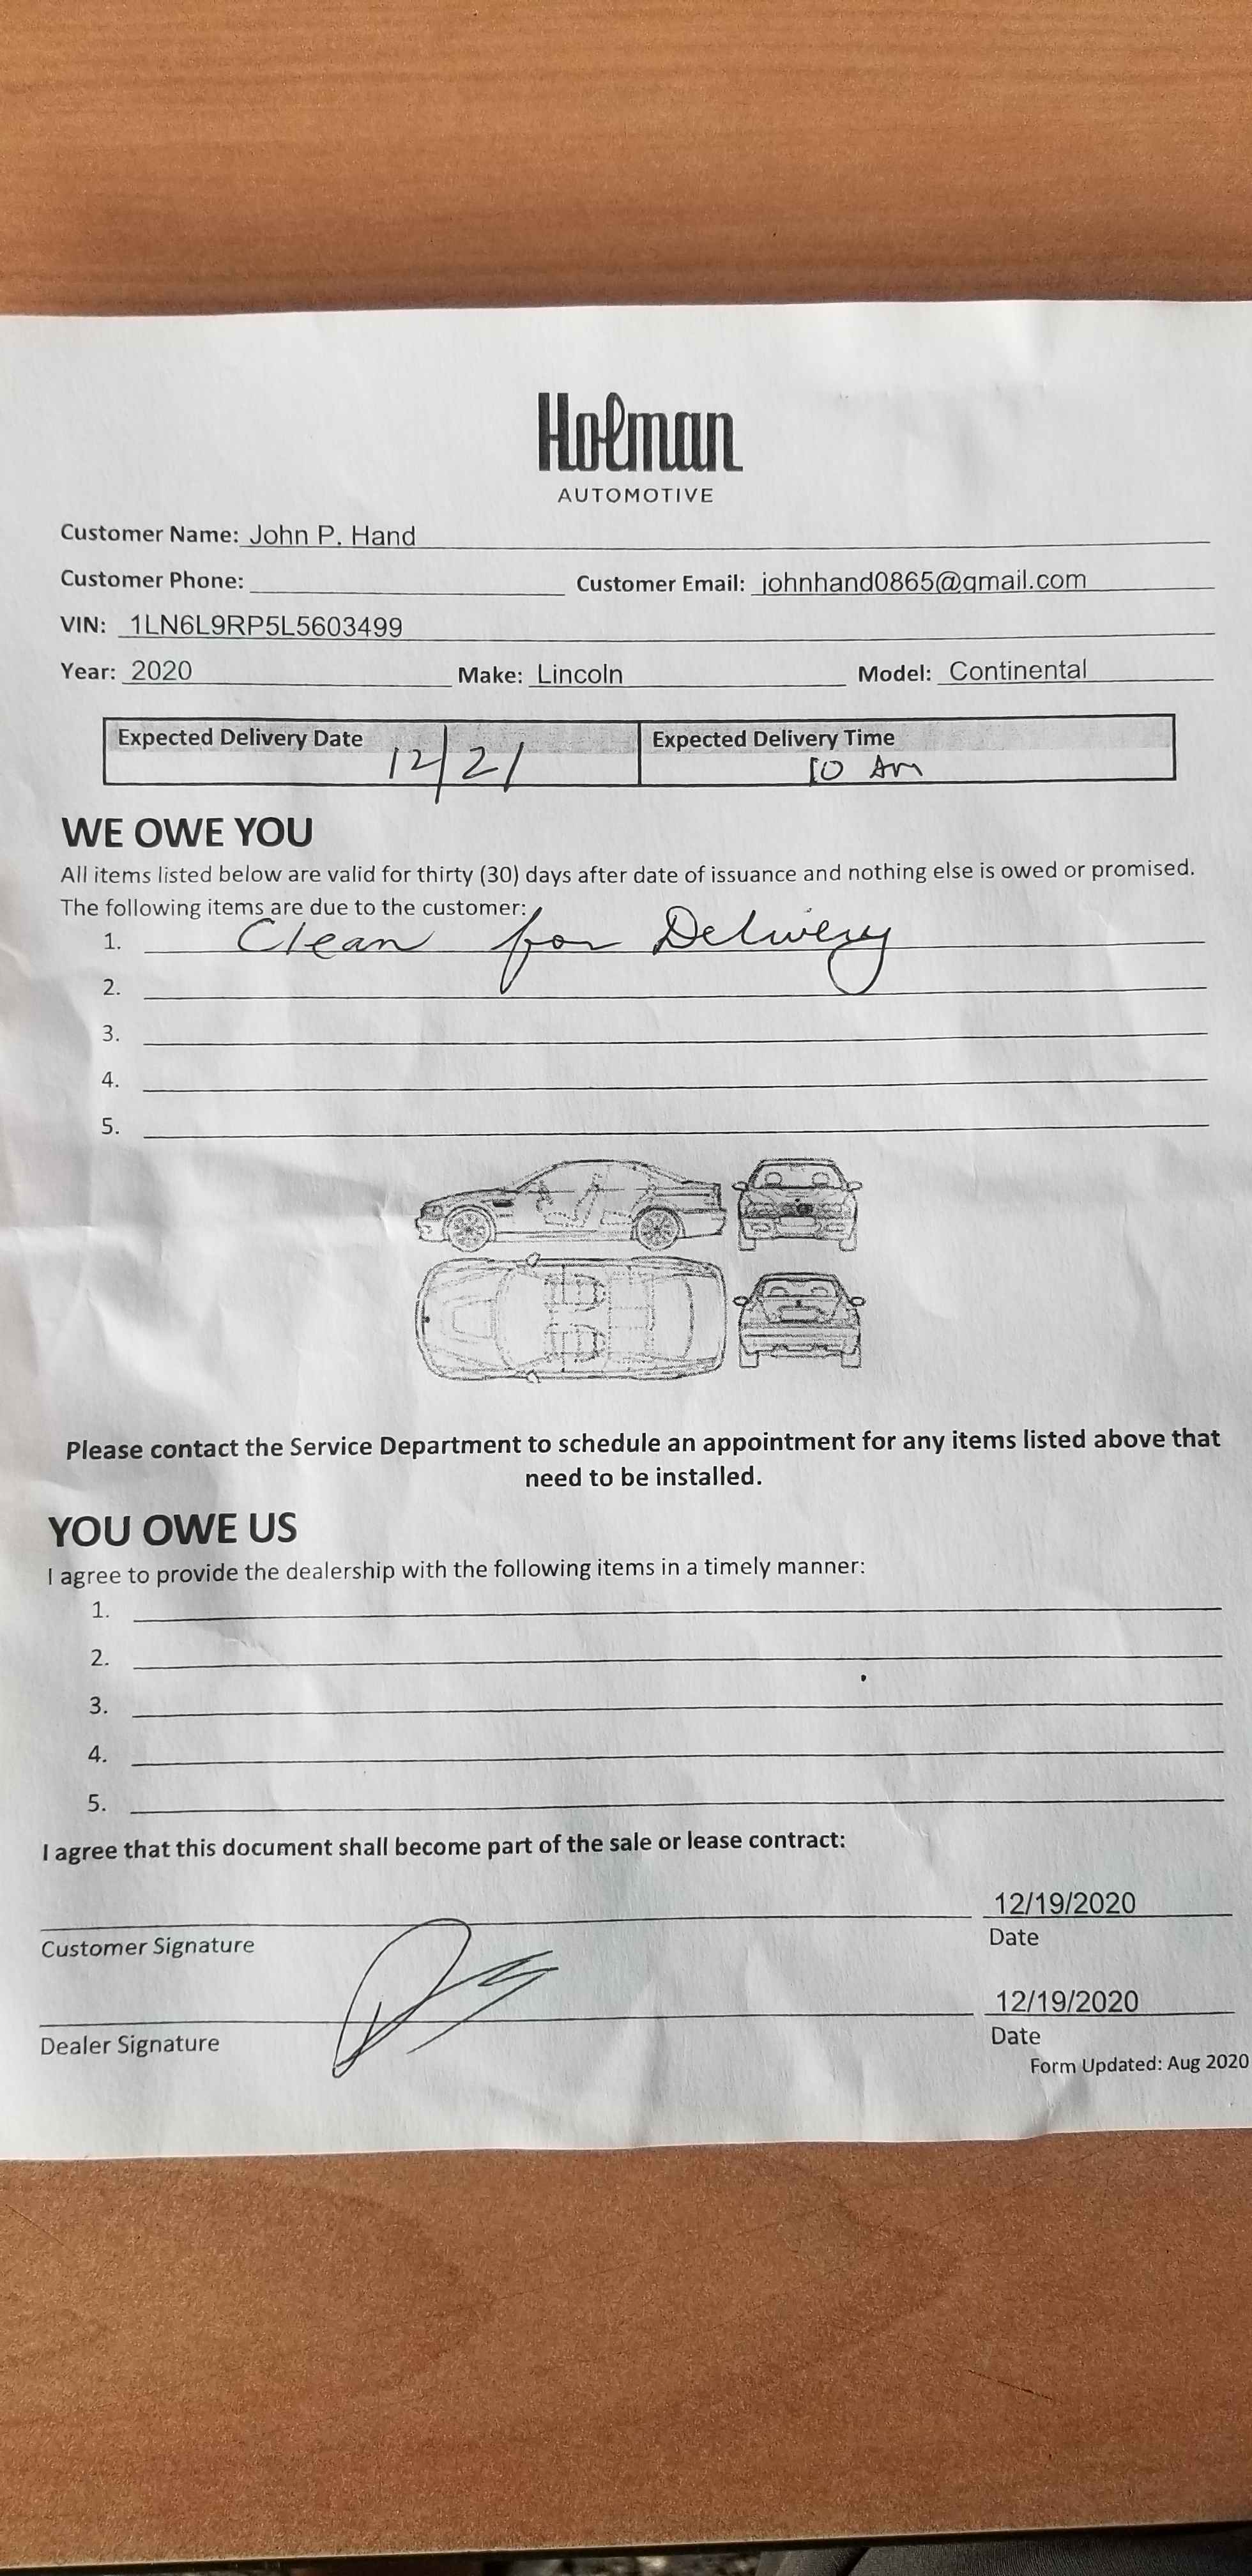 Holman
AUTOMOTIVE
Customer Name: John P. Hand
Customer Phone: Customer Email: johnhand0865@gmail.com
VIN: 1LN6L9RP5L5603499
Year: 2020 Make: Lincoln Model: Continental
Expected Delivery Date 12/21 Expected Delivery Time 10 AM
WE OWE YOU
All items listed below are valid for thirty (30) days after date of issuance and nothing else is owed or promised.
The following items are due to the customer:
1. Clean for Delivery
2.
3.
4.
5.
Please contact the Service Department to schedule an appointment for any items listed above that
need to be installed.
YOU OWE US
I agree to provide the dealership with the following items in a timely manner:
1.
2.
3.
4.
5.
I agree that this document shall become part of the sale or lease contract:
12/19/2020
Customer Signature Date
12/19/2020
Dealer Signature Date
Form Updated: Aug 2020